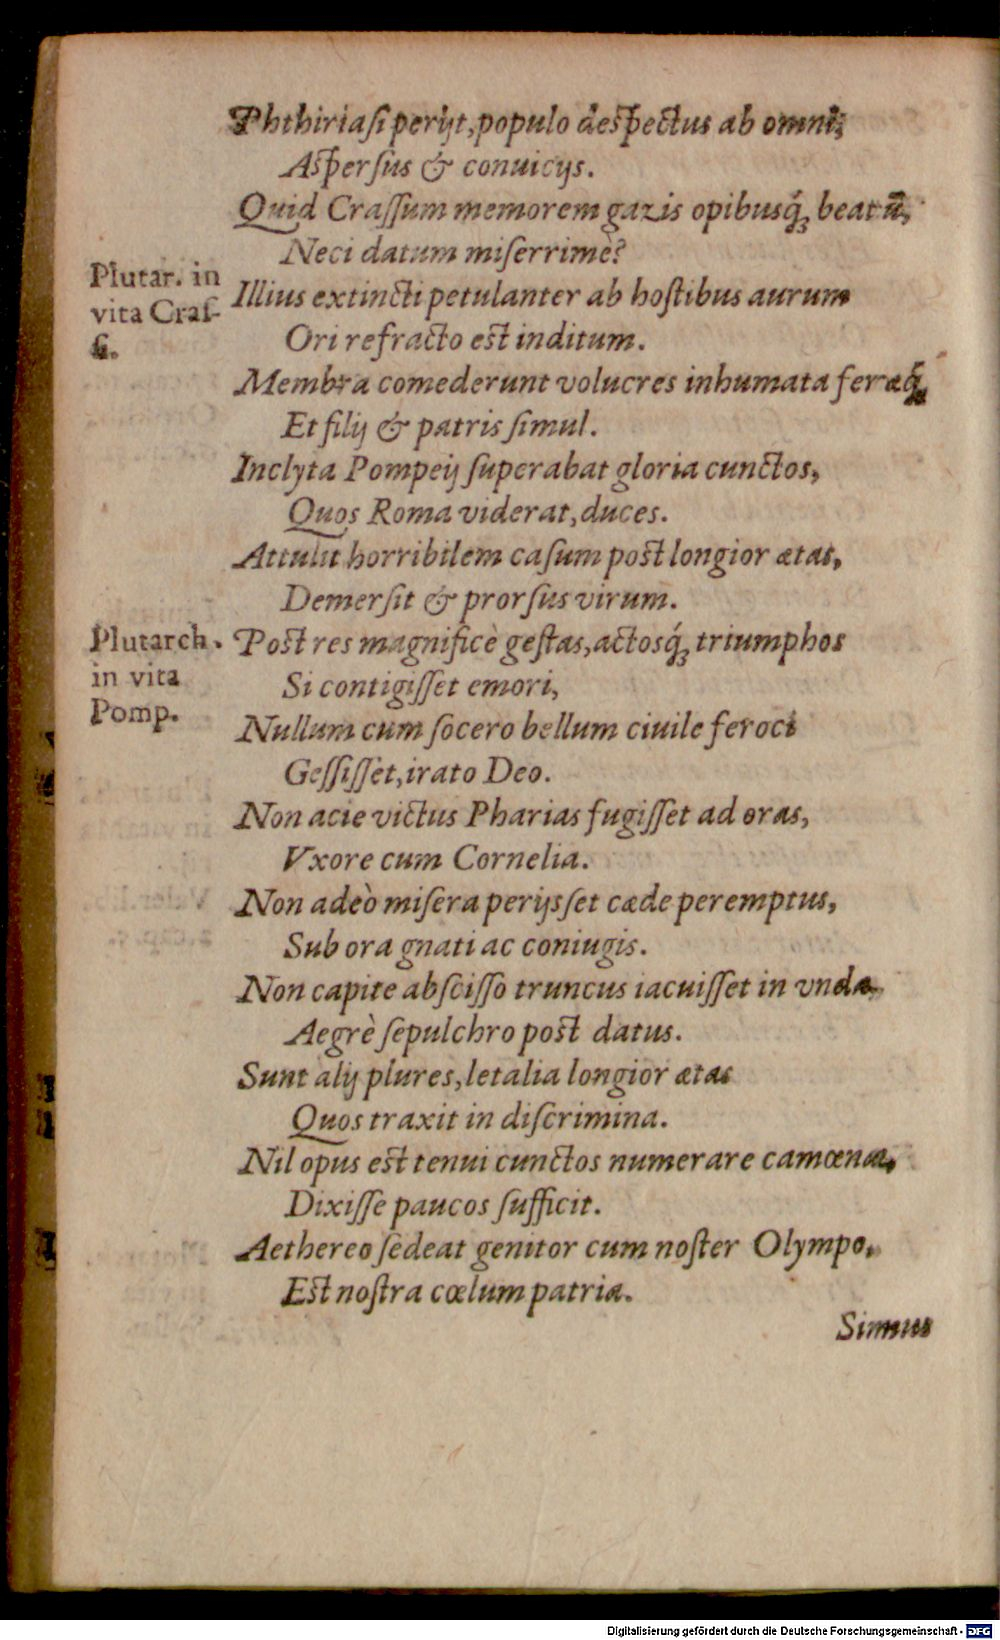 Phthiriaſi perijt, populo deſpectus ab omni;
Aſperſus & conuicijs.
Quid Craſſum memorem gazis opibusq́ꝫ beatū,
Neci datum miſerrimè?
Plutar. in
vita Craſ-
ſi.
Illius extincti petulanter ab hoſtibus aurum
Ori refracto eſt inditum.
Membra comederunt volucres inhumata feræq́ꝫ
Et filij & patris ſimul.
Inclyta Pompeij ſuperabat gloria cunctos,
Quos Roma viderat, duces.
Attulit horribilem caſum poſt longior ætas,
Demerſit & prorſus virum.
Plutarch.
in vita
Pomp.
Poſt res magnificè geſtas, actosq́ꝫ triumphos
Si contigiſſet emori,
Nullum cum ſocero bellum ciuile feroci
Geſſiſſet, irato Deo.
Non acie victus Pharias fugiſſet ad oras,
Vxore cum Cornelia.
Non adeò miſera perijsſet cæde peremptus,
Sub ora gnati ac coniugis.
Non capite abſciſſo truncus iacuiſſet in vnda,
Aegrè ſepulchro poſt datus.
Sunt alij plures, letalia longior ætas
Quos traxit in diſcrimina.
Nil opus eſt tenui cunctos numerare camœna,
Dixiſſe paucos ſufficit.
Aethereo ſedeat genitor cum noſter Olympo,
Eſt noſtra cœlum patria.
Simus
Digitalisierung gefördert durch die Deutsche Forschungsgemeinschaft - DFG